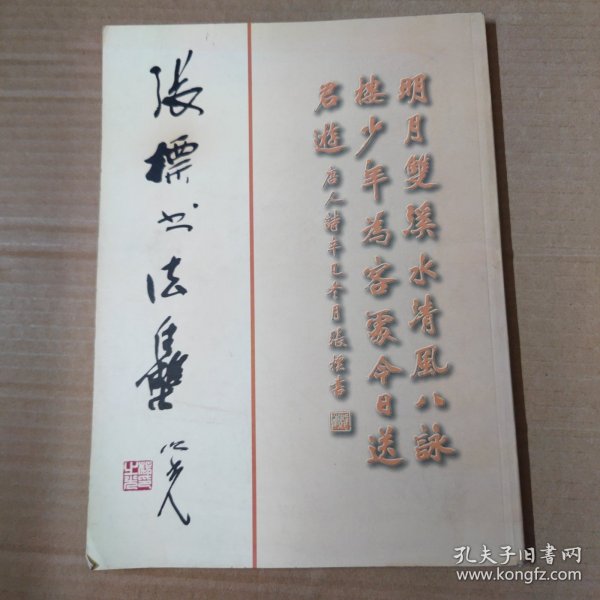 明月雙溪水清風八詠
樓少年為客處今日送
君遊 唐人詩辛巳冬月張標書
張標书法
孔夫子旧书网
www.kongfz.com